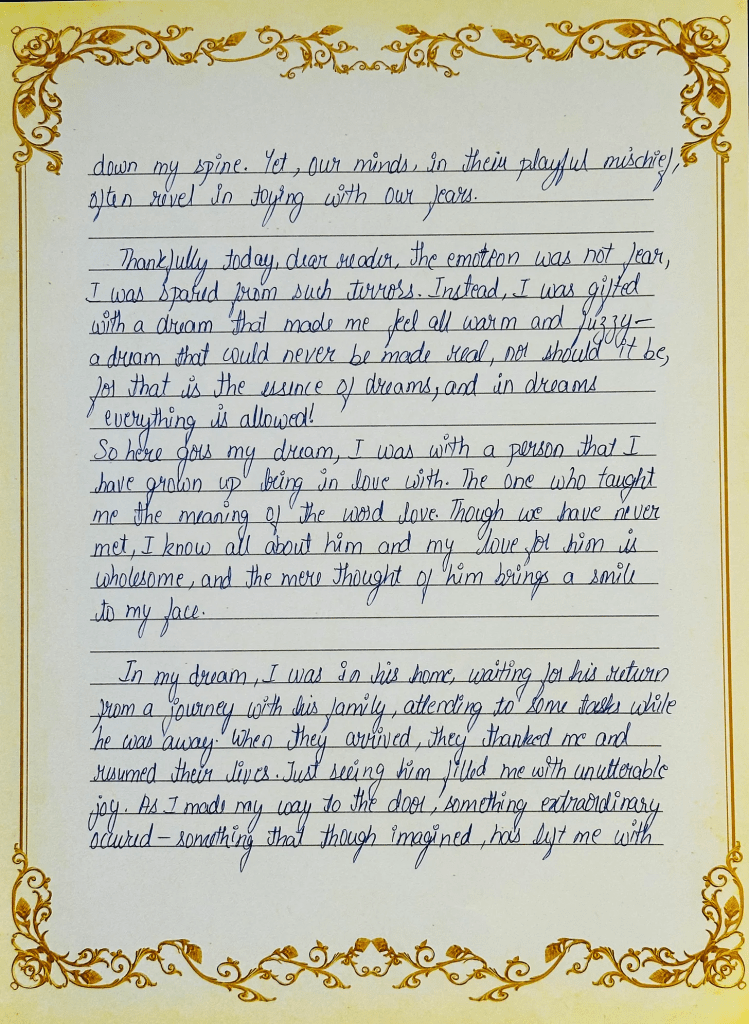 down my spine. Yet, our minds, in their playful mischief,
often revel in toying with our fears.
Thankfully today, dear reader, the emotion was not fear,
I was spared from such terrors. Instead, I was gifted
with a dream that made me feel all warm and fuzzy—
a dream that could never be made real, nor should it be,
for that is the essence of dreams, and in dreams
everything is allowed!
So here goes my dream, I was with a person that I
have grown up being in love with. The one who taught
me the meaning of the word love. Though we have never
met, I know all about him and my love for him is
wholesome, and the mere thought of him brings a smile
to my face.
In my dream, I was in his home, waiting for his return
from a journey with his family, attending to some tasks while
he was away. When they arrived, they thanked me and
resumed their lives. Just seeing him filled me with unutterable
joy. As I made my way to the door, something extraordinary
occured – something that though imagined, has left me with